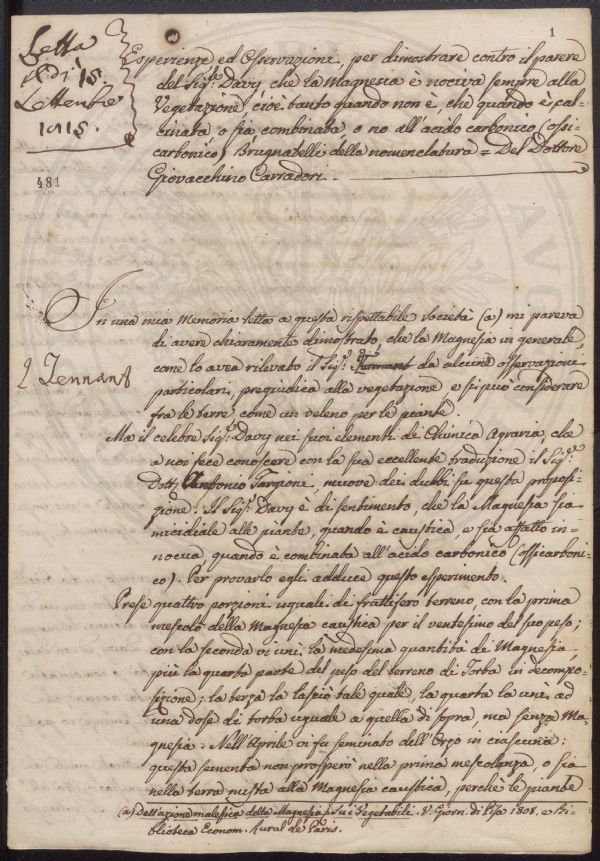 1
Letta
A Dì 15.
Settembre
1815.
481
Esperienze ed Osservazioni, per dimostrare contro il parere
del Sig.r Davy, che la Magnesia è nociva sempre alla
Vegetazione, cioè tanto quando non è, che quando è cal-
cinata, o sia combinata, o no all'acido carbonico (ossi-
carbonico) Brugnatelli della nomenclatura = Del Dottore
Giovacchino Carradori.
In una mia Memoria letta a questa rispettabile Società (a) mi pareva
di avere chiaramente dimostrato, che la Magnesia in generale,
come lo avea rilevato il Sig.r Tennant da alcune osservazioni
2 Tennant
particolari, pregiudica alla vegetazione e si può considerare
fra le terre come un veleno per le piante.
Ma il celebre Sig.r Davy nei suoi elementi di Chimica Agraria, che
a noi fece conoscere con la sua eccellente traduzione il Sig.r
Dott. Antonio Targioni, muove dei dubbi su questa proposi-
zione. Il Sig.r Davy è di sentimento, che la Magnesia sia
micidiale alle piante, quando è caustica, e sia affatto in-
nocua quando è combinata all'acido carbonico (ossicarboni-
co). Per provarlo egli adduce questo esperimento.
Prese quattro porzioni uguali di fruttifero terreno, con la prima
mescolò della Magnesia caustica per il ventesimo del suo peso;
con la seconda vi unì la medesima quantità di Magnesia,
più la quarta parte del peso del terreno di Torba in decompo-
sizione; la terza la lasciò tale quale, la quarta la unì ad
una dose di torba uguale a quella di sopra, ma senza Ma-
gnesia. Nell'Aprile vi fu seminato dell'Orzo in ciascuna:
questa sementa non prosperò nella prima mescolanza, o sia
nella terra mista alla Magnesia caustica, perchè le piante
(a) Dell'azione malefica della Magnesia su i Vegetabili. V. Giorn. di Pisa 1808. e Bi-
blioteca Econom. Rural de Paris.